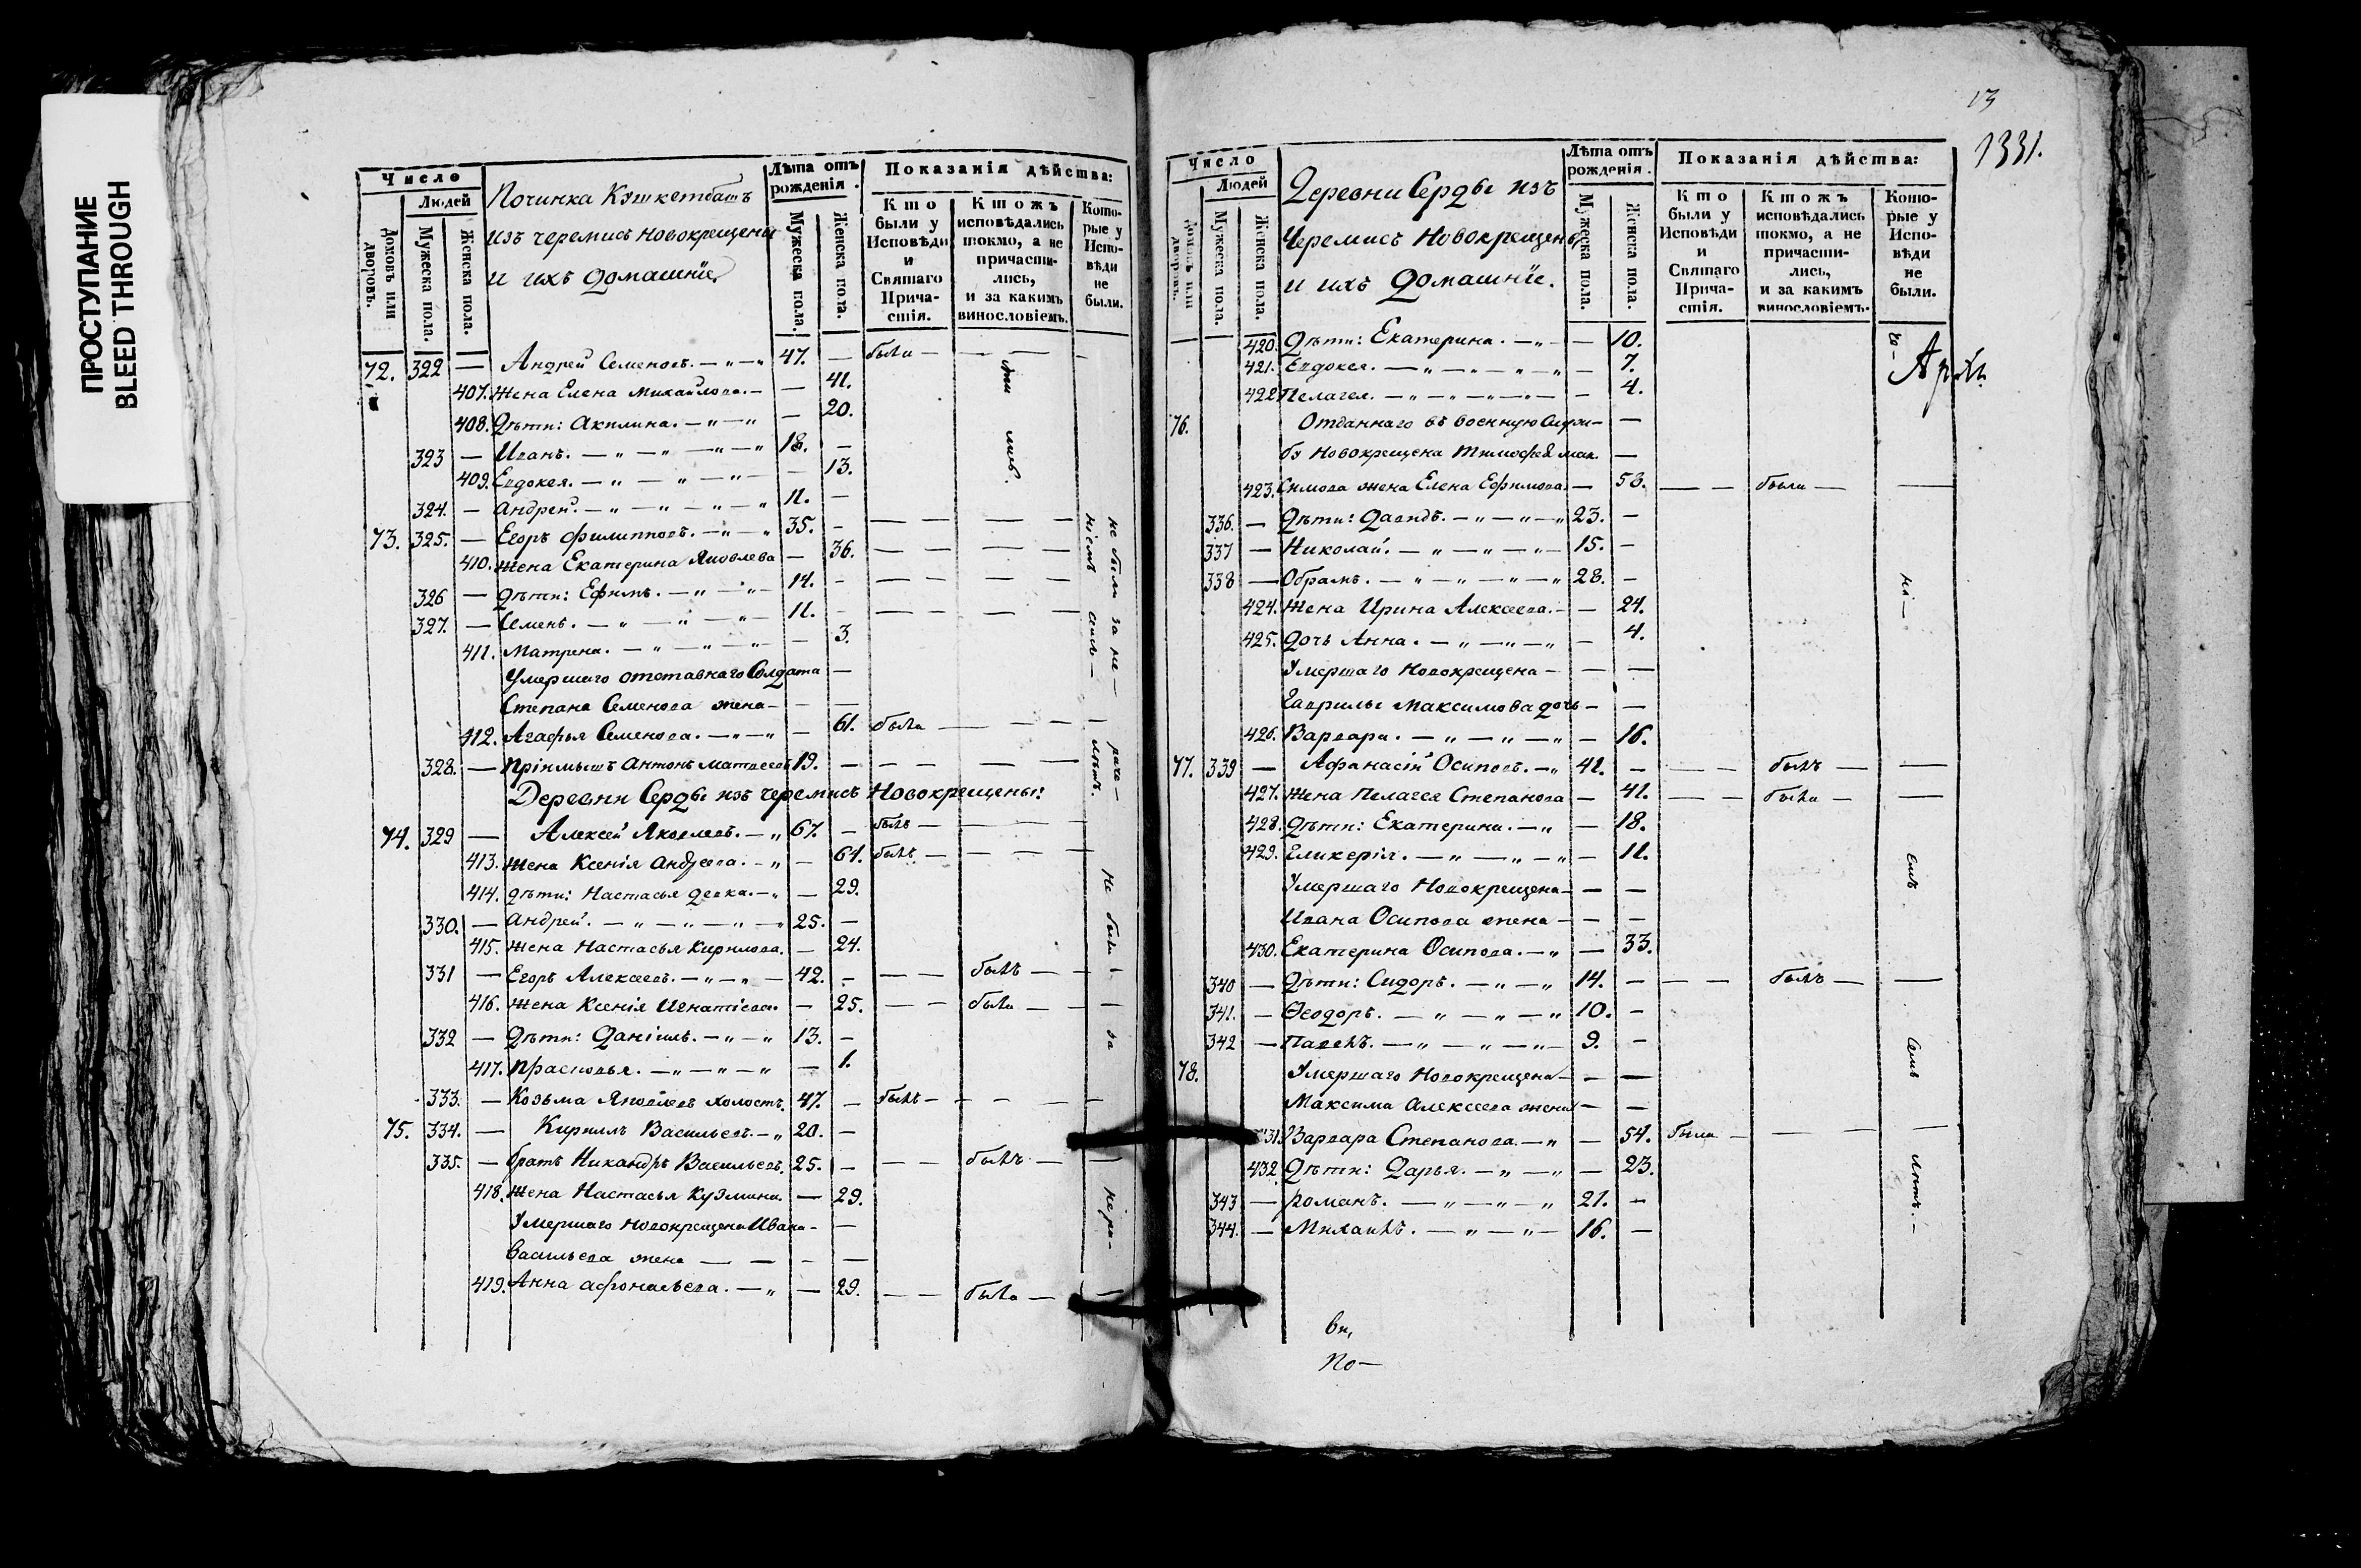 ПРОСТУПАНИЕ
BLEED THROUGH
Число
Людей
Домовъ или дворовъ.
Мужеска пола.
Женска пола.
Починка Кэшкетбашъ
изъ черемисъ новокрещены
и ихъ домашніе.
Лѣта отъ рожденія.
Мужеска пола.
Женска пола.
Показанія дѣйства:
Кто были у Исповѣди и Святаго Причастія.
Ктожъ исповѣдались токмо, а не причастились, и за какимъ винословіемъ.
Которые у Исповѣди не были.
72. 322 — Андрей Семеновъ. — 47. — были —
407. Жена Елена Михайлова. — 41.
408. Дѣти: Акилина. — 20.
323 — Иванъ. — 18. —
409. Евдокея. — 13.
324. — Андрей. — 11. —
73. 325. — Егоръ Филипповъ. — 35. —
410. Жена Екатерина Яковлева — 36.
326 — Дѣти: Ефимъ. — 14. —
327. — Семенъ. — 11. —
411. Матрена. — 3.
Умершаго отставнаго Солдата —
Степана Семенова жена —
412. Агафья Семенова. — 61. была —
328. — Пріимышъ Антонъ Матвеевъ 19. —
Деревни Серды изъ черемисъ Новокрещены:
74. 329 — Алексей Яковлевъ. — 67. — былъ —
413. Жена Ксенія Андреева. — 61. былъ —
414. Дѣти: Настасья девка. — 29.
330. — Андрей. — 25. —
415. Жена Настасья Кирилова. — 24.
331 — Егоръ Алексеевъ. — 42. — былъ —
416. Жена Ксенія Игнатіева. — 25. — была —
332 — Дѣти: Даніилъ. — 13. —
417. Прасковья. — 1.
333. — Козьма Яковлевъ холостъ. 47. — былъ —
75. 334. — Кириллъ Васильевъ. — 20. —
335. — братъ Никандръ Васильевъ. 25. — былъ —
418. Жена Настасья Кузмина. — 29.
Умершаго новокрещена Ивана —
Васильева жена —
419. Анна Афонасьева. — 29. — была —
не были за не —
13
1331.
Число
Людей
Домовъ или дворовъ.
Мужеска пола.
Женска пола.
Деревни Серды изъ
Черемисъ Новокрещены
и ихъ домашніе.
Лѣта отъ рожденія.
Мужеска пола.
Женска пола.
Показанія дѣйства:
Кто были у Исповѣди и Святаго Причастія.
Ктожъ исповѣдались токмо, а не причастились, и за какимъ винословіемъ.
Которые у Исповѣди не были.
420. Дѣти: Екатерина. — 10.
421. Евдокея. — 7.
422 Пелагея. — 4.
76. Отданнаго въ военную Служ—
бу новокрещена Тимофея Мак—
423. симова жена Елена Ефимова. — 56. — были —
336. — Дѣти: Давидъ. — 23. —
337 — Николай. — 15. —
338 — Обрамъ. — 28. —
424. Жена Ирина Алексеева. — 24.
425. Дочь Анна. — 4.
Умершаго Новокрещена —
Гаврилы Максимова дочь —
426. Варвара. — 16.
77. 339 — Афанасій Осиповъ. — 41. — былъ —
427. Жена Пелагея Степанова — 41. — была —
428. Дѣти: Екатерина. — 18.
429. Гликерія. — 11.
Умершаго Новокрещена —
Ивана Осипова жена —
430. Екатерина Осипова. — 33.
340 — Дѣти: Сидоръ. — 14. — былъ —
341. — Ѳеодоръ. — 10. —
342 — Павелъ. — 9. —
78. Умершаго Новокрещена —
Максима Алексеева жена —
431. Варвара Степанова. — 54. была —
432 Дѣти: Дарья. — 23.
343 — Романъ. — 21. —
344. — Михаилъ. — 16. —
По —